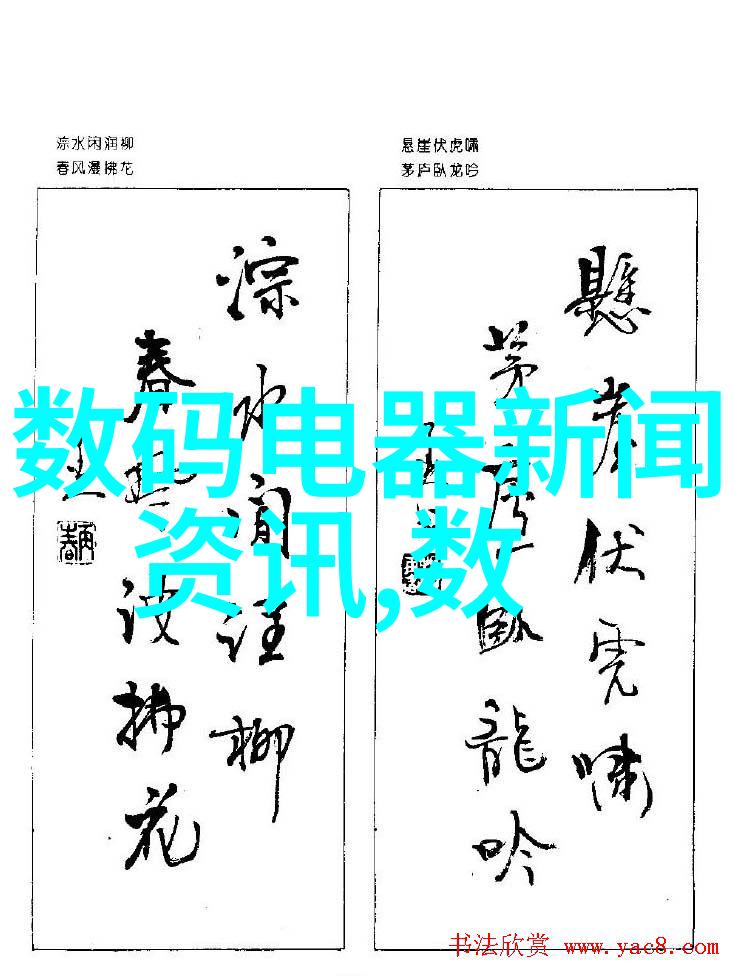 淙水闲润柳
春风漫拂花
悬崖伏虎啸
茅庐卧龙吟
淙水闲润柳
春风漫拂花
懸崖伏虎嘯
茅庐卧龍吟
数码电器新闻
资讯,数
书法欣赏 www.yac8.com